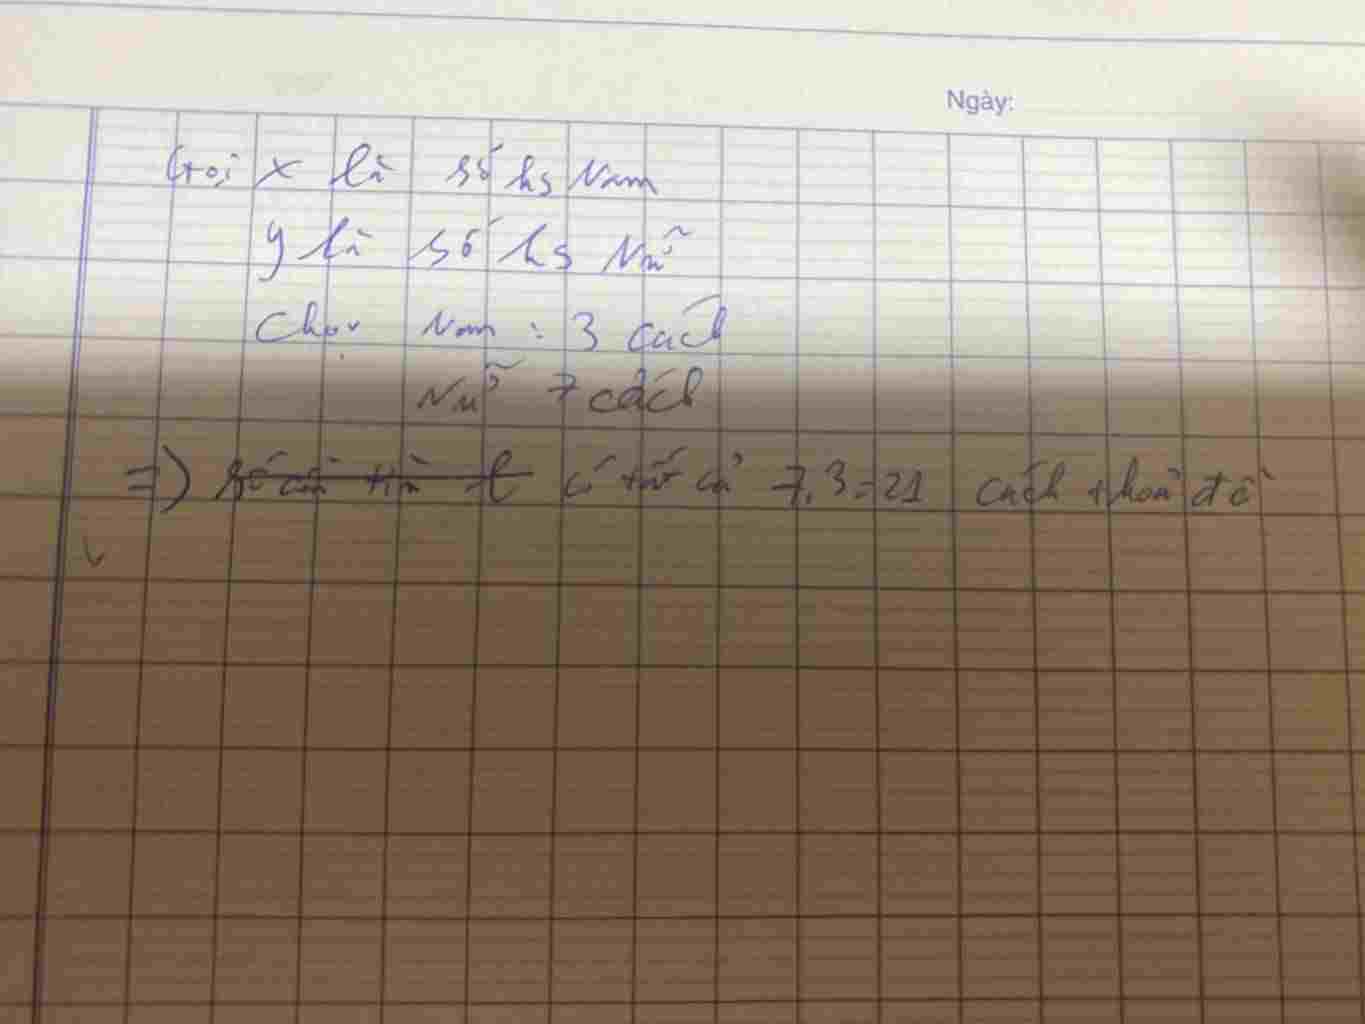 Ngày:
Gọi x là số hs Nam
y là số hs Nữ
Chọn Nam : 3 cách
Nữ 7 cách
=) có tất cả 7.3=21 cách thoả đề